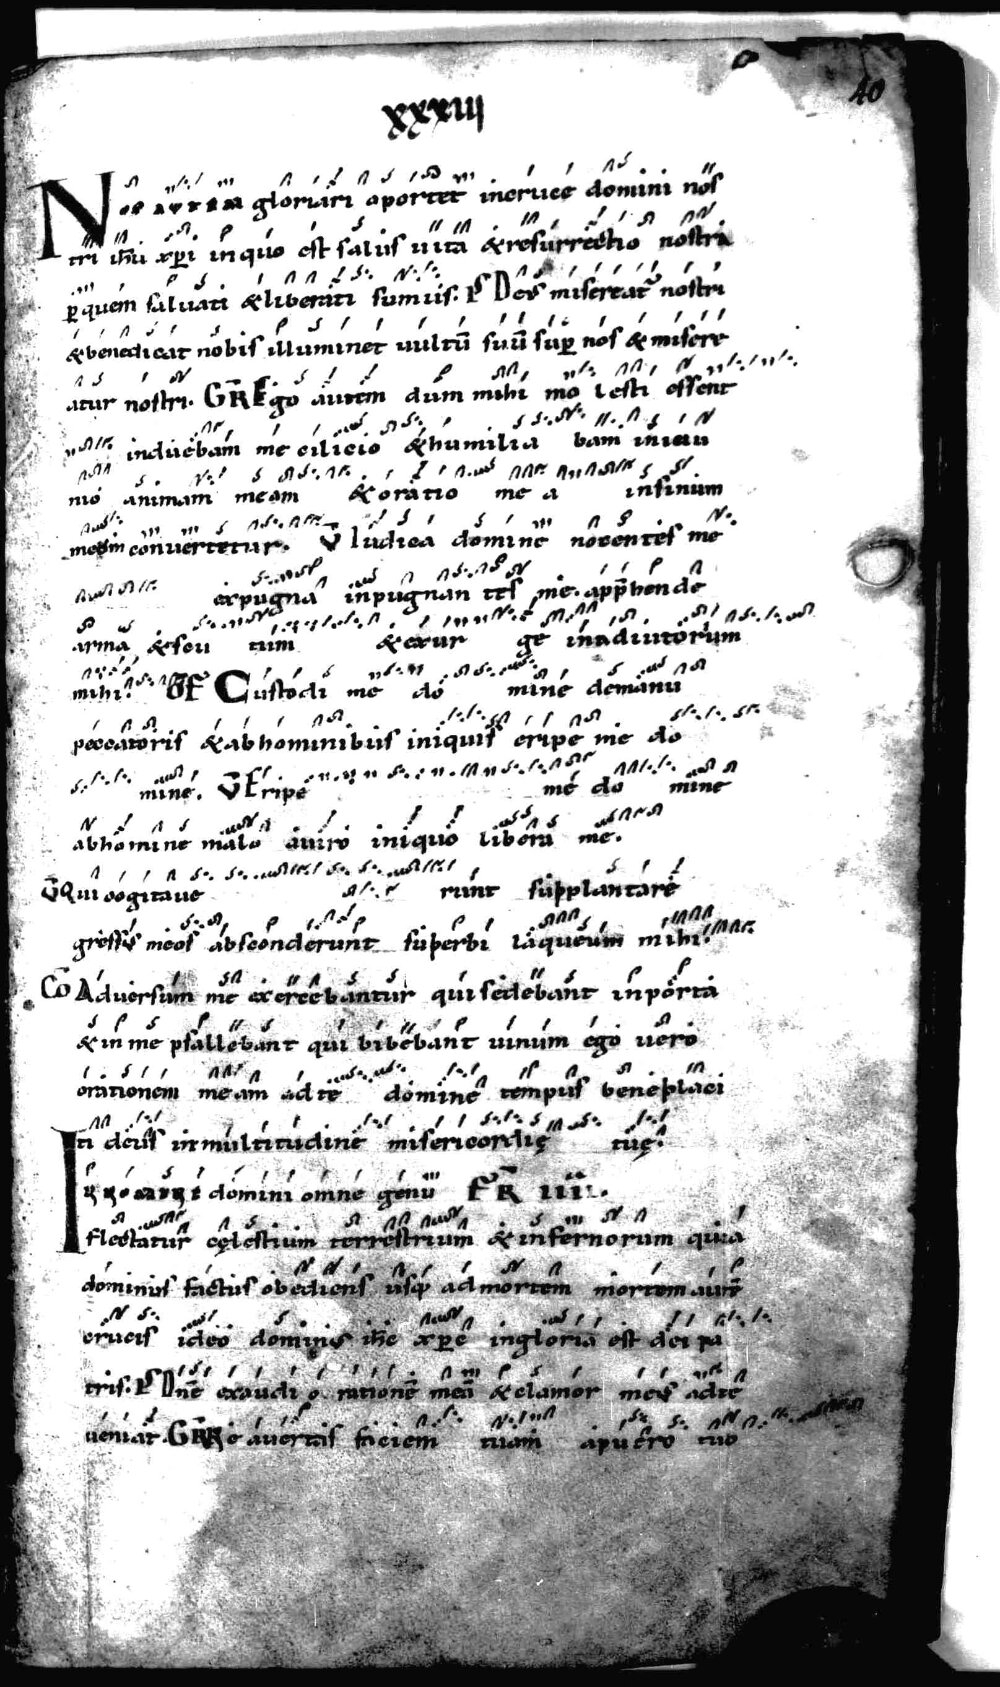 40
xxxiii
Nos autem gloriari oportet in cruce domini nos
tri ihu xpi in quo est salus uita & resurrectio nostra
p quem saluati & liberati sumus. PS Deus misereat nostri
& benedicat nobis illuminet uultū suū sup nos & misere
atur nostri. GR Ego autem dum mihi mo lesti essent
induebam me cilicio & humilia bam in ieiu
nio animam meam & oratio me a in sinum
meum conuertetur. V Iudica domine nocentes me
expugna inpugnan tes me. apphende
arma & scu tum & exur ge in adiutorium
mihi. OF Custodi me do mine de manu
peccatoris & ab hominibus iniquis eripe me do
mine. V Eripe me do mine
ab homine malo a uiro iniquo libera me.
V Qui cogitaue runt supplantare
gressus meos absconderunt superbi laqueum mihi.
Cō Aduersum me exercebantur qui sedebant in porta
& in me psallebant qui bibebant uinum ego uero
orationem meam ad te domine tempus beneplaci
ti deus in multitudine misericordię tuę.
In nomine domini omne genu FR IIII.
flectatur cęlestium terrestrium & infernorum quia
dominus factus obediens usq ad mortem mortem autē
crucis ideo dominus ihc xpc in gloria est dei pa
tris. PS Dnē exaudi o rationē meā & clamor meus ad te
ueniat. GR Ne auertas faciem tuam a puero tuo